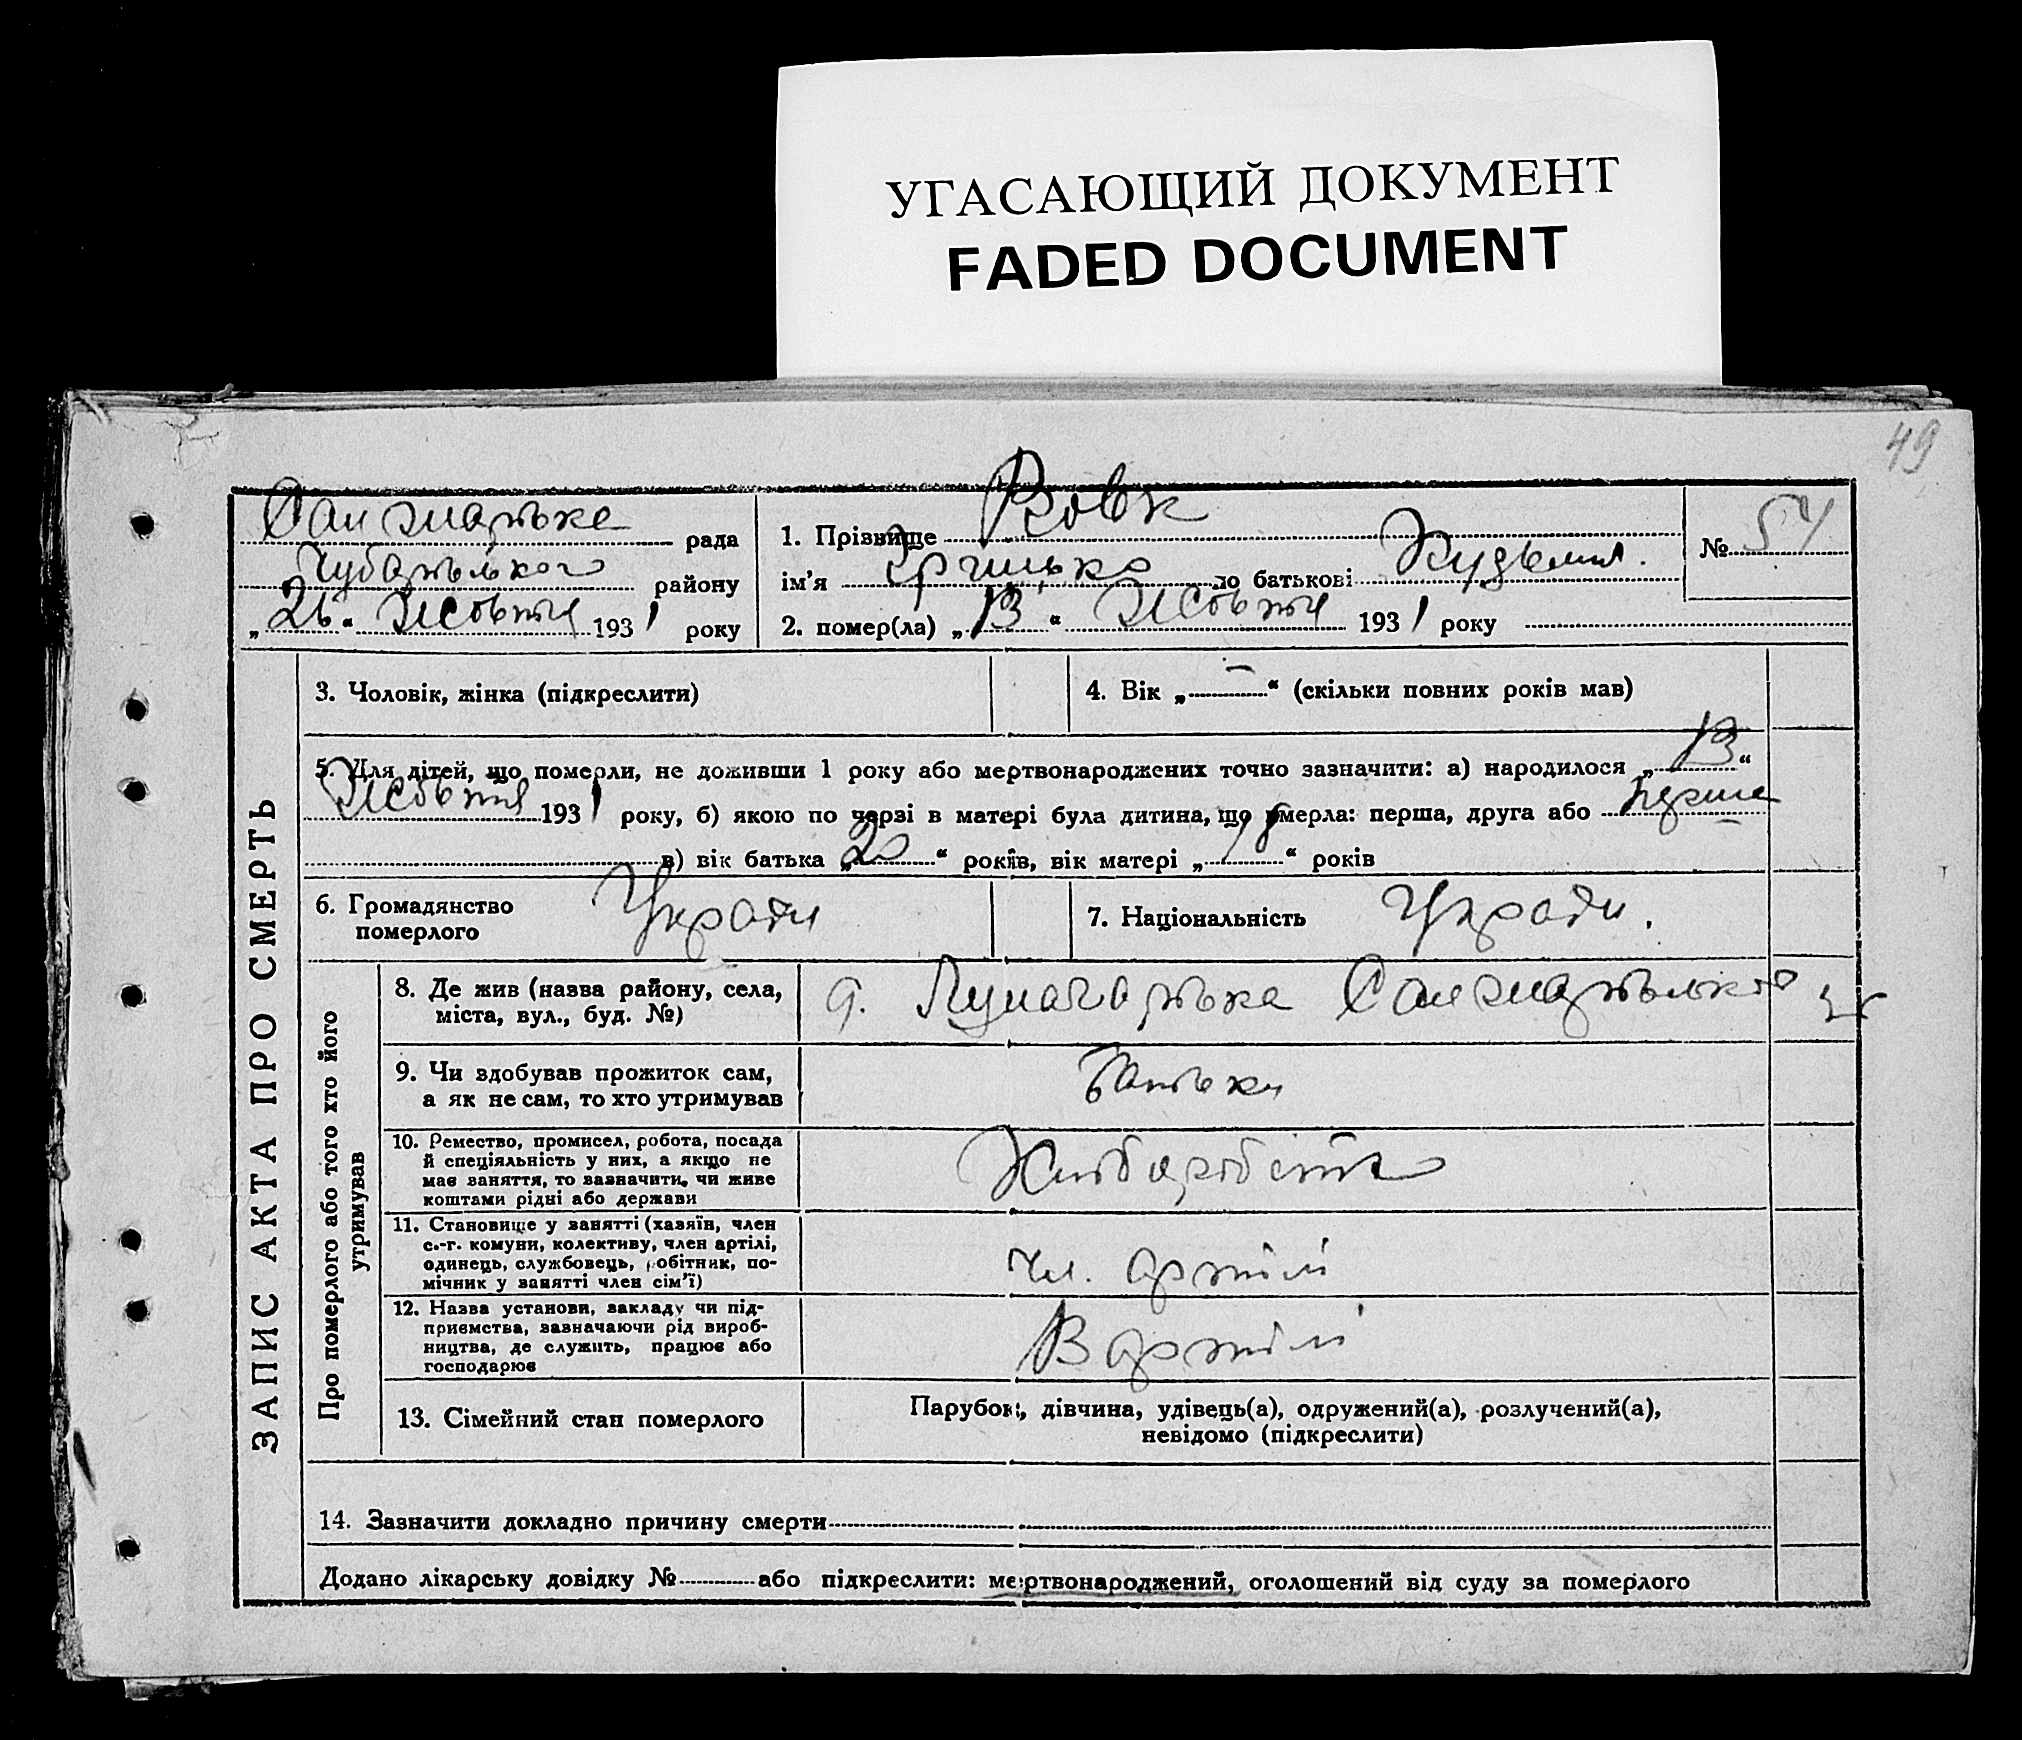 УГАСАЮЩИЙ ДОКУМЕНТ
FADED DOCUMENT
49
рада
району
„26“ Жовтня 1931 року
1. Прізвище Вовк
ім’я Грицько по батькові Кузьмич.
2. помер(ла) „13“ Жовтня 1931 року
№ 54
ЗАПИС АКТА ПРО СМЕРТЬ
3. Чоловік, жінка (підкреслити)
4. Вік „ — “ (скільки повних років мав)
5. Для дітей, що померли, не доживши 1 року або мертвонароджених точно зазначити: а) народилося „13“
Жовтня 1931 року, б) якою по черзі в матері була дитина, що умерла: перша, друга або перша
в) вік батька „20“ років, вік матері „18“ років
6. Громадянство
померлого
7. Національність
Про померлого або того хто його
утримував
8. Де жив (назва району, села,
міста, вул., буд. №)
9. Чи здобував прожиток сам,
а як не сам, то хто утримував
Батьки
10. Ремество, промисел, робота, посада
й спеціяльність у них, а якщо не
має заняття, то зазначити, чи живе
коштами рідні або держави
11. Становище у занятті (хазяїн, член
с.-г. комуни, колективу, член артілі,
одинець, службовець, робітник, по-
мічник у занятті член сім’ї)
чл. артілі
12. Назва установи, закладу чи під-
приємства, зазначаючи рід вироб-
ництва, де служить, працює або
господарює
В артілі
13. Сімейний стан померлого
Парубок, дівчина, удівець(а), одружений(а), розлучений(а),
невідомо (підкреслити)
14. Зазначити докладно причину смерти
Додано лікарську довідку № або підкреслити: мертвонароджений, оголошений від суду за померлого